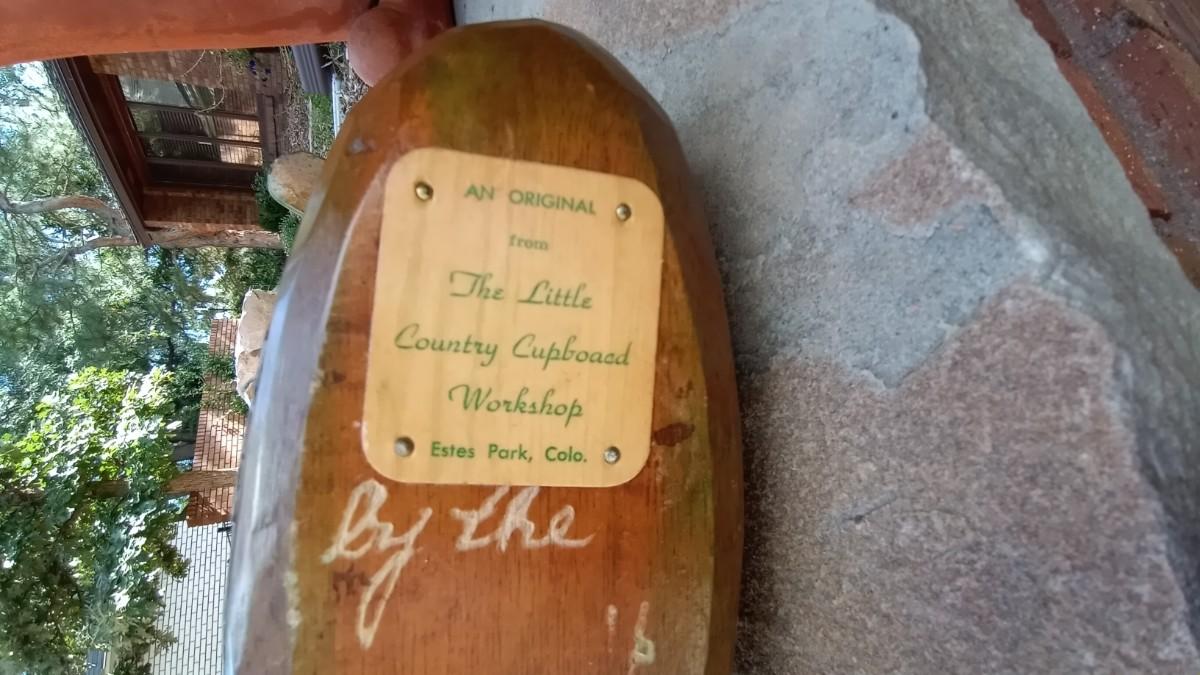 AN ORIGINAL
from
The Little
Country Cupboard
Workshop
Estes Park, Colo.
By the